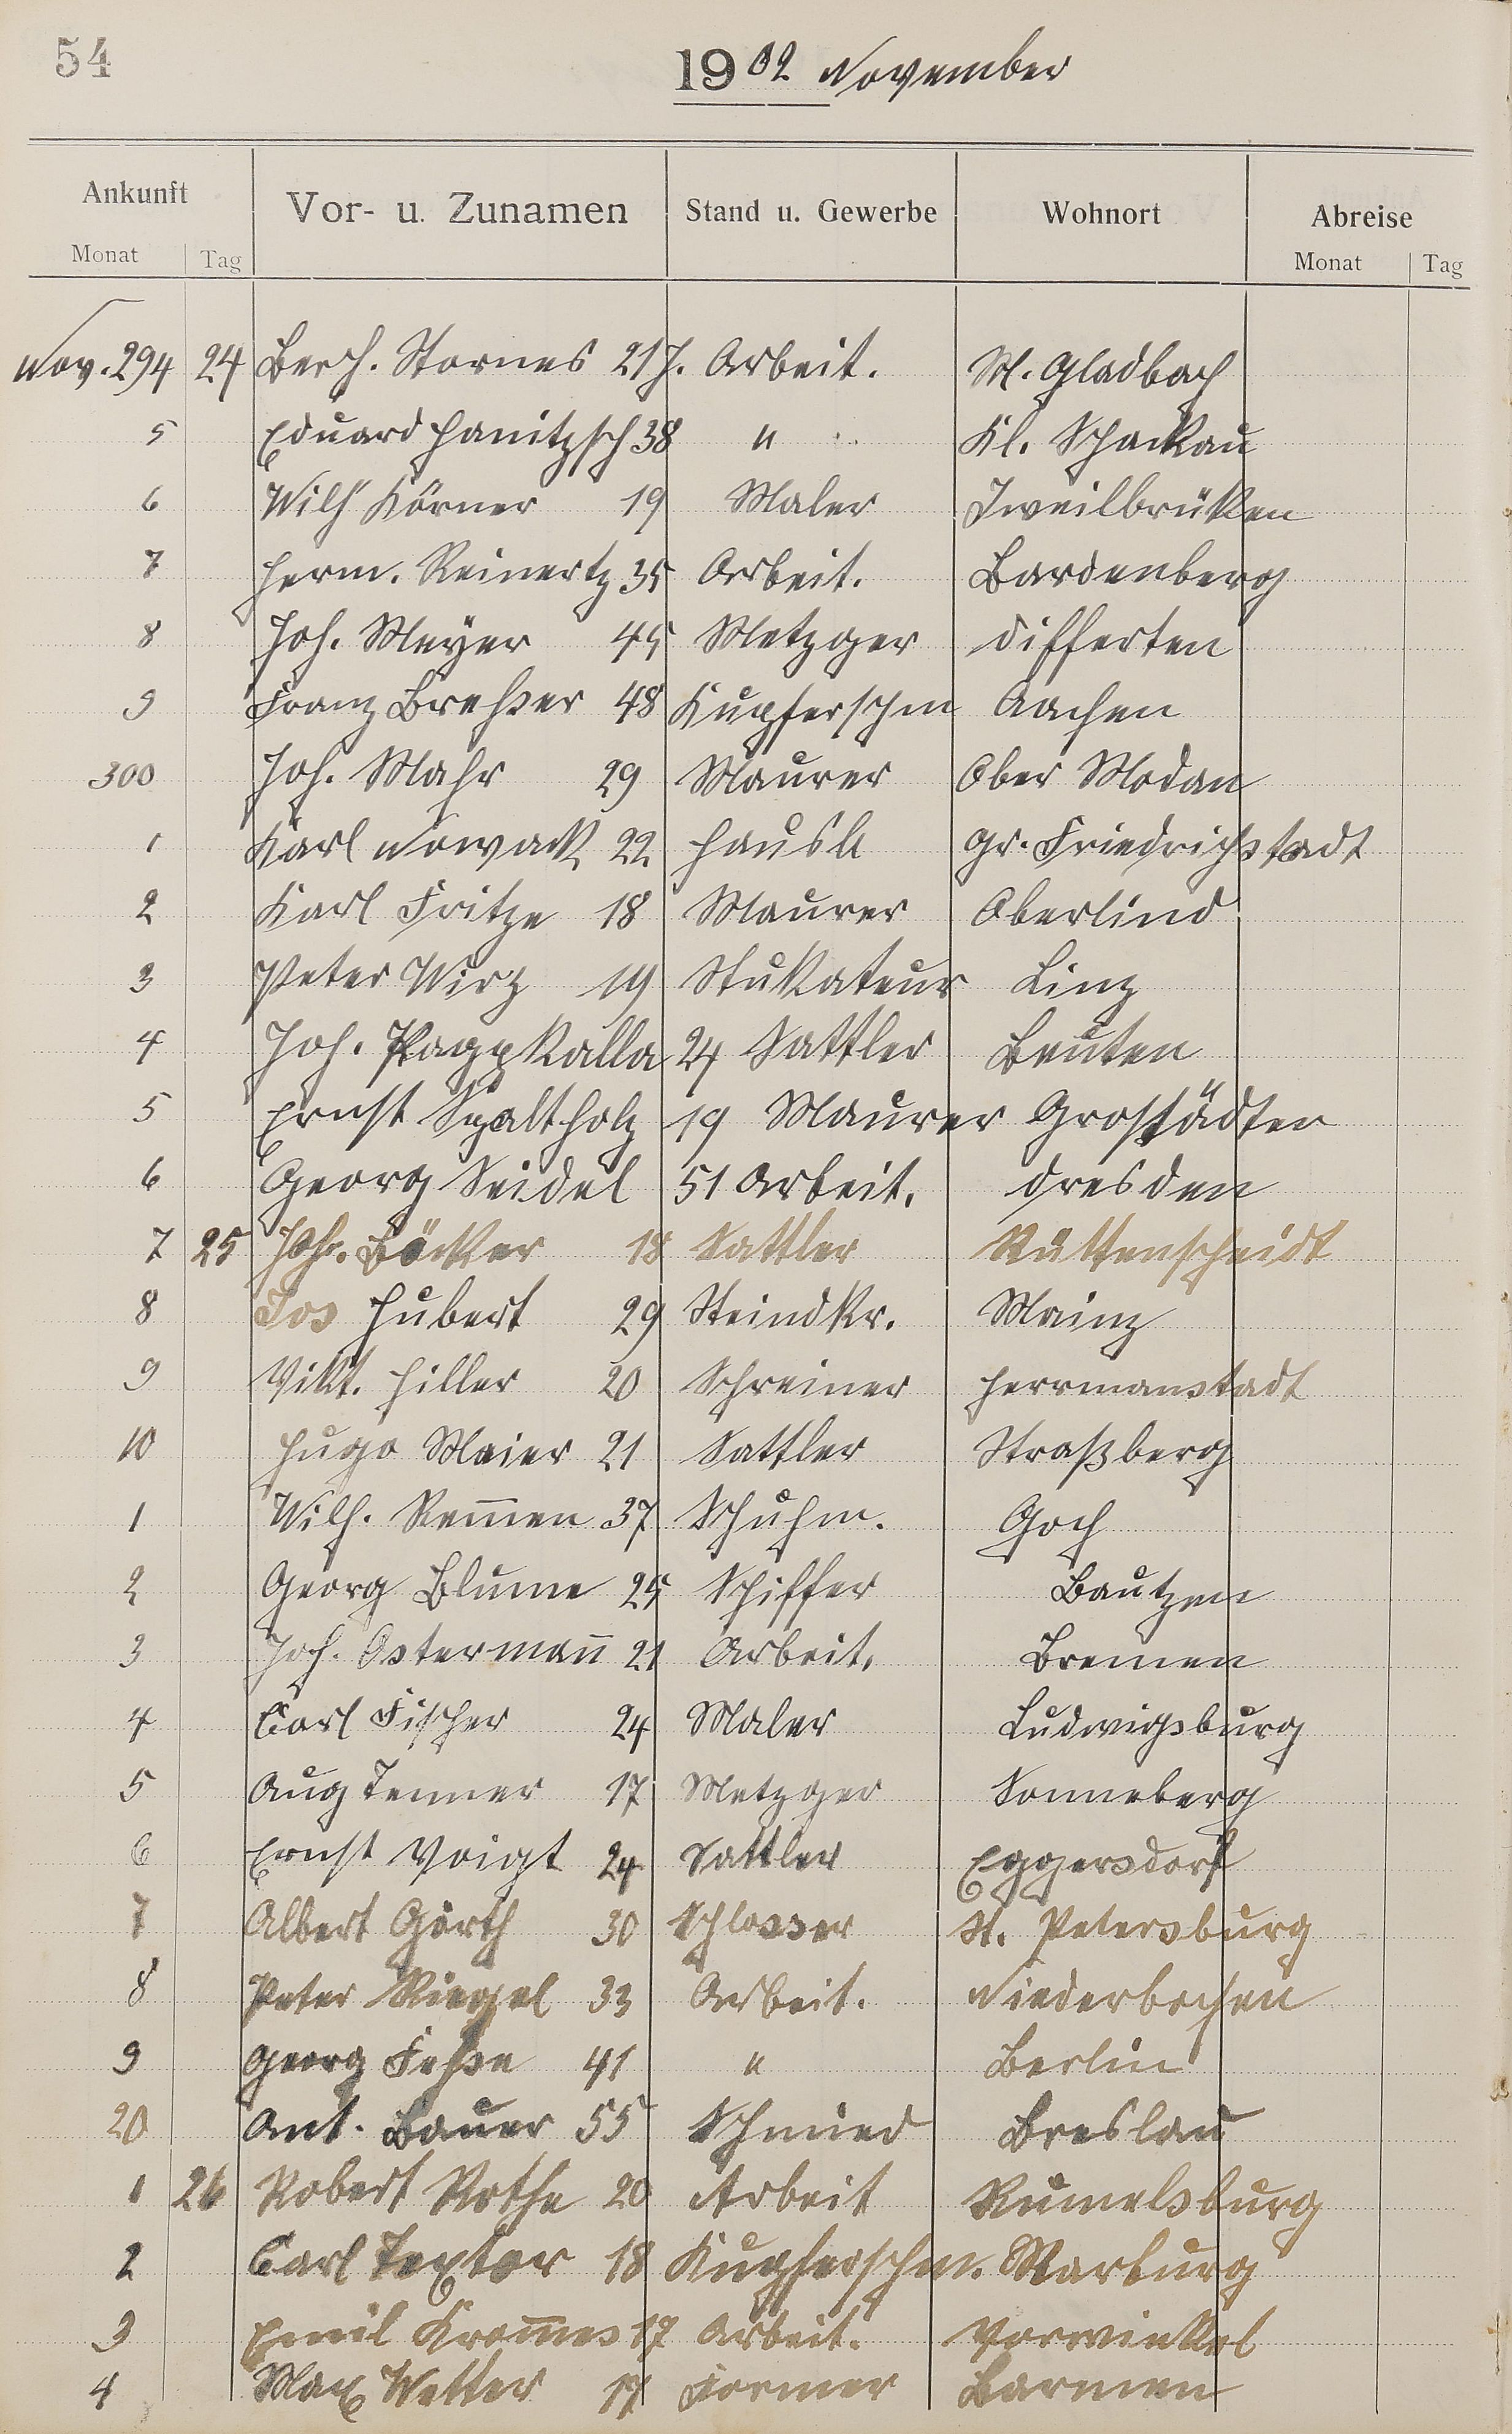 54
1902 November
Ankunft Vor- u. Zunamen Stand u. Gewerbe Wohnort Abreise
Monat Tag Monat Tag
Nov. 294 24 Berh. Stornes 21 J. Arbeit. M. Gladbach
5 Eduard Hanitzsch 38 " Kl. Schackau
6 Wilh Körner 19 Maler Zweilbrüken
7 Herm. Reinertz 35 Arbeit. Bardenberg
8 Joh. Meyer 45 Metzger Differten
9 Franz Breßer 48 Kupferschm Aachen
300 Joh. Mahr 29 Maurer Ober Modau
1 Karl Nowack 22 Hausb gr. Friedrichstadt
2 Karl Fritze 18 Maurer Oberlind
3 Peter Wirz 19 Stukateur Linz
4 Joh. Pappkalla 24 Sattler Beuten
5 Ernst Spaltholz 19 Maurer Grostädten
6 Georg Seidel 51 Arbeit. Dresden
7 25 Joh. Böcker 18 Sattler Rüttenscheidt
8 Jos Hubert 29 Steindkr. Mainz
9 Vikt. Hiller 20 Schreiner Herrmanstadt
10 Hugo Maier 21 Sattler Straßberg
1 Wilh. Rem̄en 37 Schuhm. Goch
2 Georg Blume 25 Schiffer Bautzen
3 Joh. Osterman̄ 21 Arbeit. Bremen
4 Carl Fischer 24 Maler Ludwigsburg
5 Aug Tenner 17 Metzger Sonneberg
6 Ernst Voigt 24 Sattler Eggersdorf
7 Albert Görth 30 Schlosser St. Petersburg
8 Peter Riegel 33 Arbeit. Niederbochen
9 Georg Feße 41 " Berlin
20 Ant. Bauer 55 Schmied Breslau
1 26 Robert Rothe 20 Arbeit Rumelsburg
2 Carl Textor 18 Kupferschm. Marburg
3 Emil Krom̄es 17 Arbeit. Vorwinkel
4 Max Wetter 17 Former Barmen